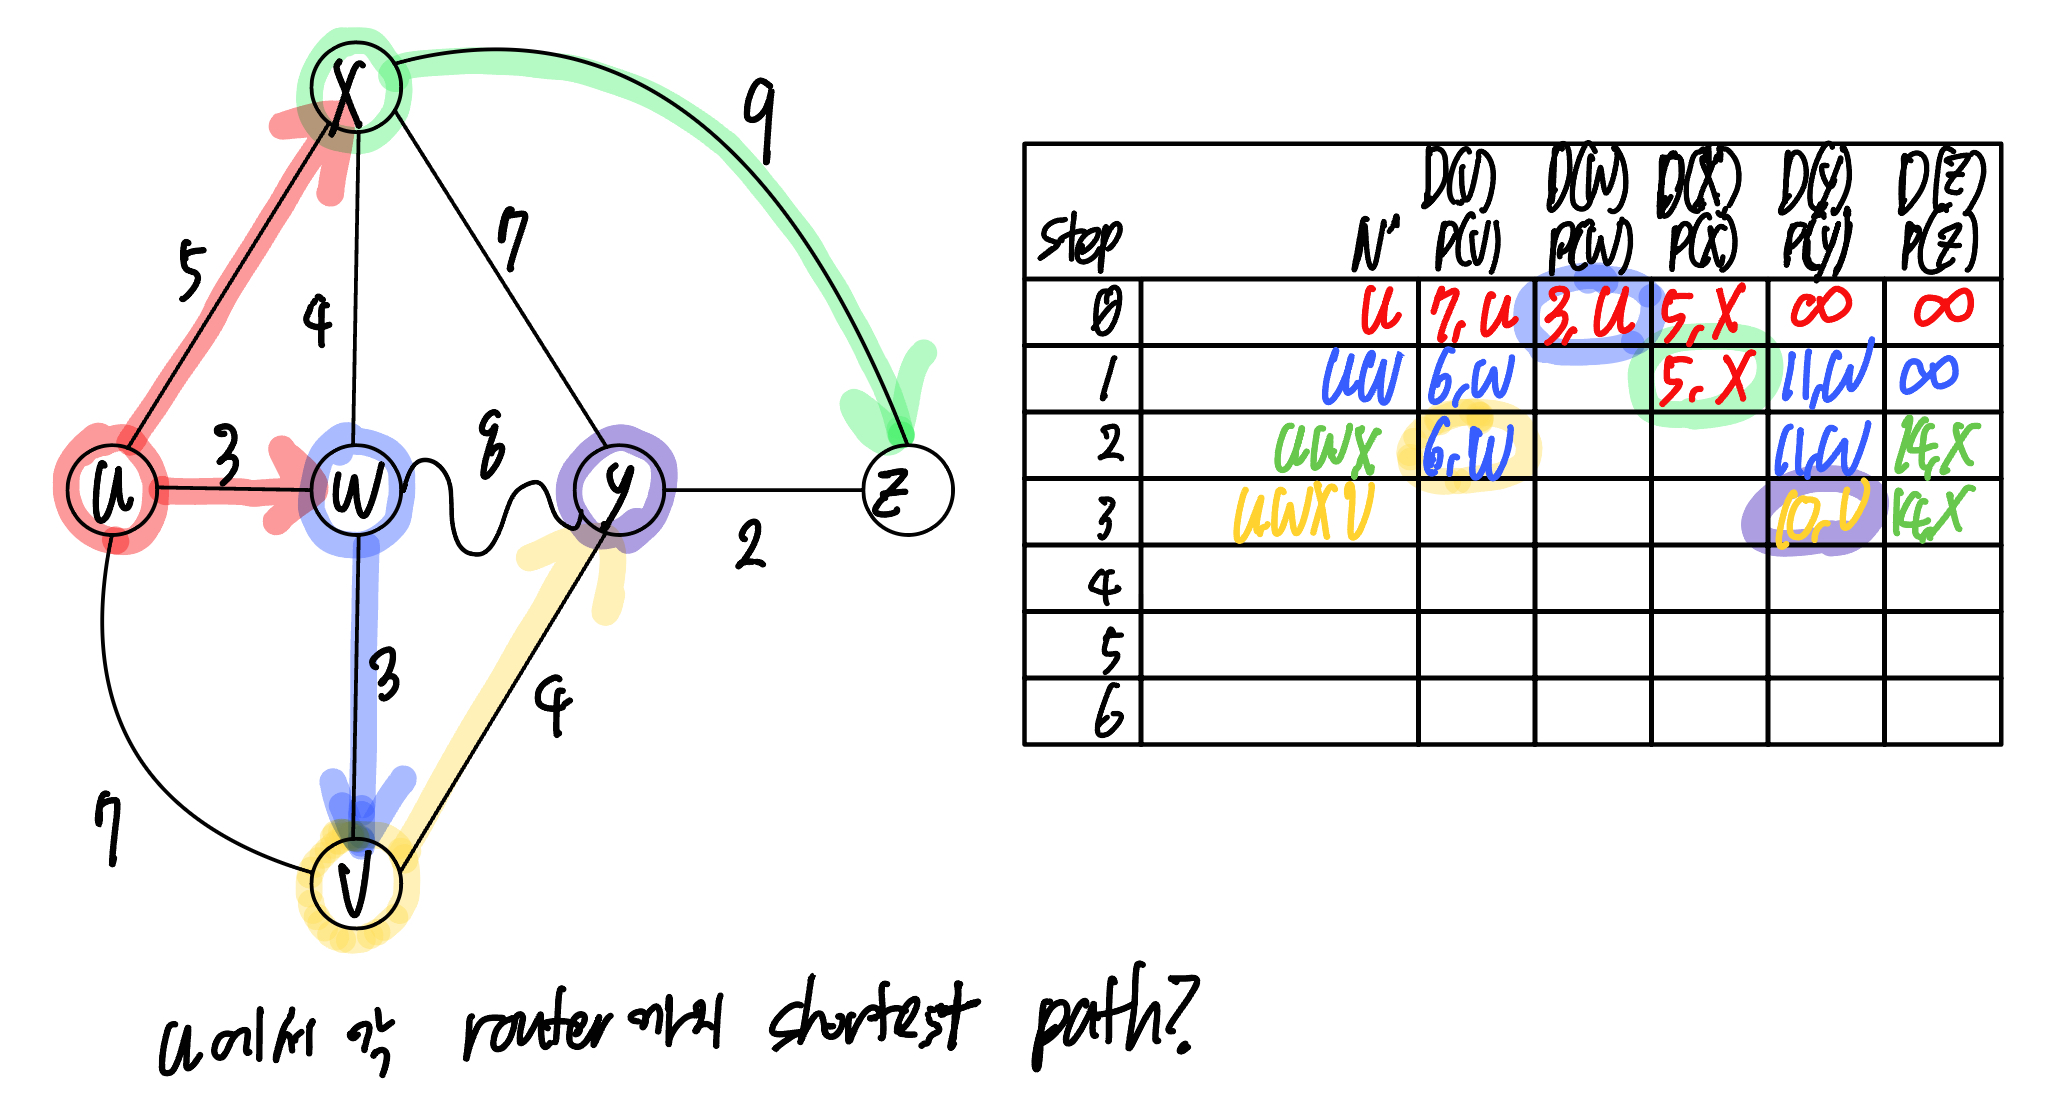 X
9
5
4
7
u
3
w
8
y
2
z
3
4
7
v
D(v) D(w) D(x) D(y) D(z)
step N' P(v) P(w) P(x) P(y) P(z)
0 u 7,u 3,u 5,x ∞ ∞
1 uw 6,w 5,x 11,w ∞
2 uwx 6,w 11,w 14,x
3 uwxv 10,v 14,x
4
5
6
u에서 각 router까지의 shortest path?